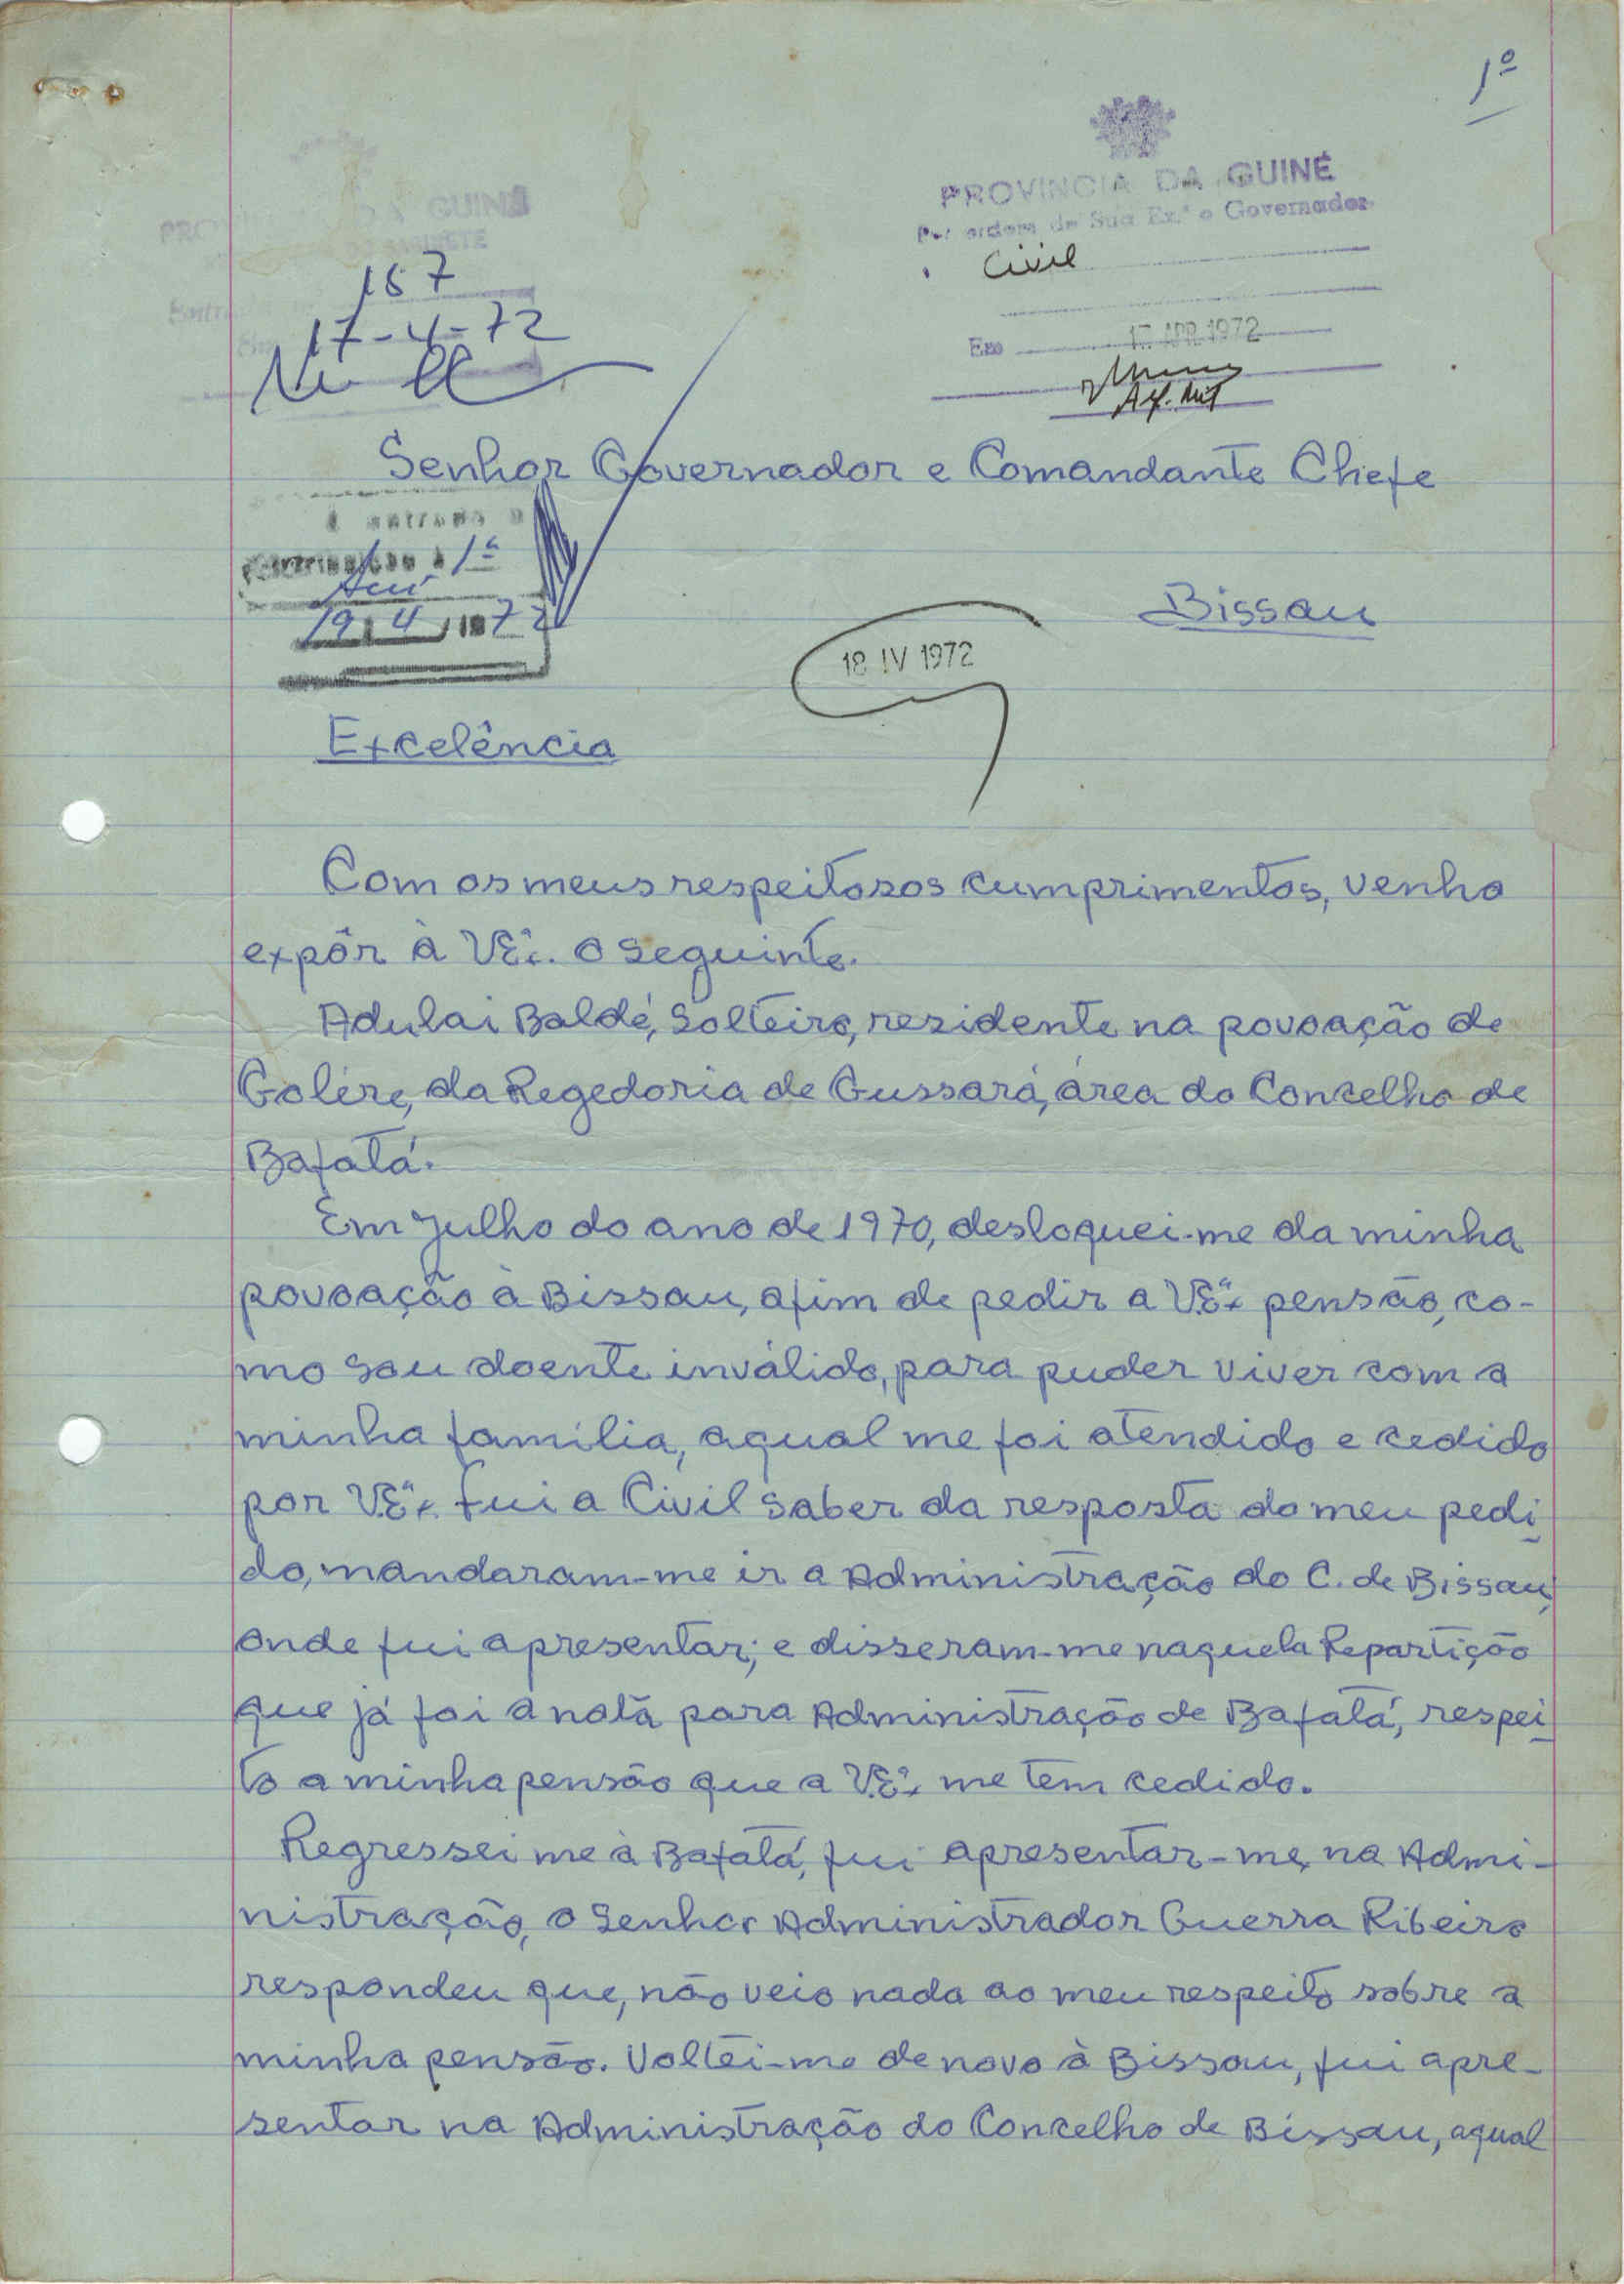 1º
PROVINCIA DA GUINÉ
Por ordem de Sua Exª o Governador
Civil
Em 17 APR 1972
Alf. Mil
DA GUINÉ
GABINETE
167
17-4-72
Senhor Governador e Comandante Chefe
entrada
1ª
19/4/1972
Bissau
18 IV 1972
Excelência
Com os meus respeitosos cumprimentos, venho
expôr à V.Exª. o seguinte.
Adulai Baldé, Solteiro, residente na povoação de
Galére, da Regedoria de Gussará, área do Concelho de
Bafatá.
Em Julho do ano de 1970, desloquei-me da minha
povoação à Bissau, afim de pedir a V.Exª pensão, co-
mo sou doente inválido, para puder viver com a
minha família, aqual me foi atendido e cedido
por V.Exª. Fui a Civil saber da resposta do meu pedi-
do, mandaram-me ir a Administração do C. de Bissau,
onde fui apresentar; e disseram-me naquela Repartição
que já foi a nota para Administração de Bafatá, respei-
to a minha pensão que a V.Exª me tem cedido.
Regressei me à Bafatá, fui apresentar-me, na Admi-
nistração, o Senhor Administrador Guerra Ribeiro
respondeu que, não veio nada ao meu respeito sobre a
minha pensão. Voltei-me de novo à Bissau, fui apre-
sentar na Administração do Concelho de Bissau, aqual